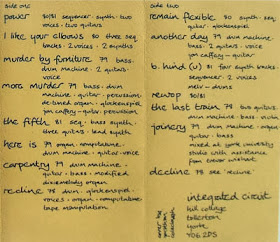 side one
power 80/81 sequencer · synth · two
voices · two guitars
i like your elbows 80 three seq.
tracks · 2 voices · 2 synths
murder by furniture 79 bass ·
drum machine · 2 guitars ·
voice
more murder 79 bass · drum
machine · guitar · percussion
detuned organ · glockenspiel
jon caffery - guitar, percussion
the fifth 81 seq · bass · synth
three guitars · lead synth
here is 79 organ · manipulations
drum machine · guitar · voice
carpentry 79 drum machine ·
guitar · bass · modified
melody organ
recline 78 drum · glockenspiel
voices · organ · manipulations
tape manipulation
side two
remain flexible 80 synth · seq ·
guitar · glockenspiel
another day 79 drum mach ·
bass · 2 guitars · voice
jon caffery - guitar
b. hind (u) 81 four synth tracks ·
sequencer
neil - drums
rewop 80/81
the last train 78 two guitars
drum machine · bass · violin
joinery 79 drum machine · organ
guitar · bass ·
mixed at york university
studio with assistance
from trevor wishart
decline 78 see 'recline'
integrated circuit
hill cottage
tollerton
york
YO6 2PS